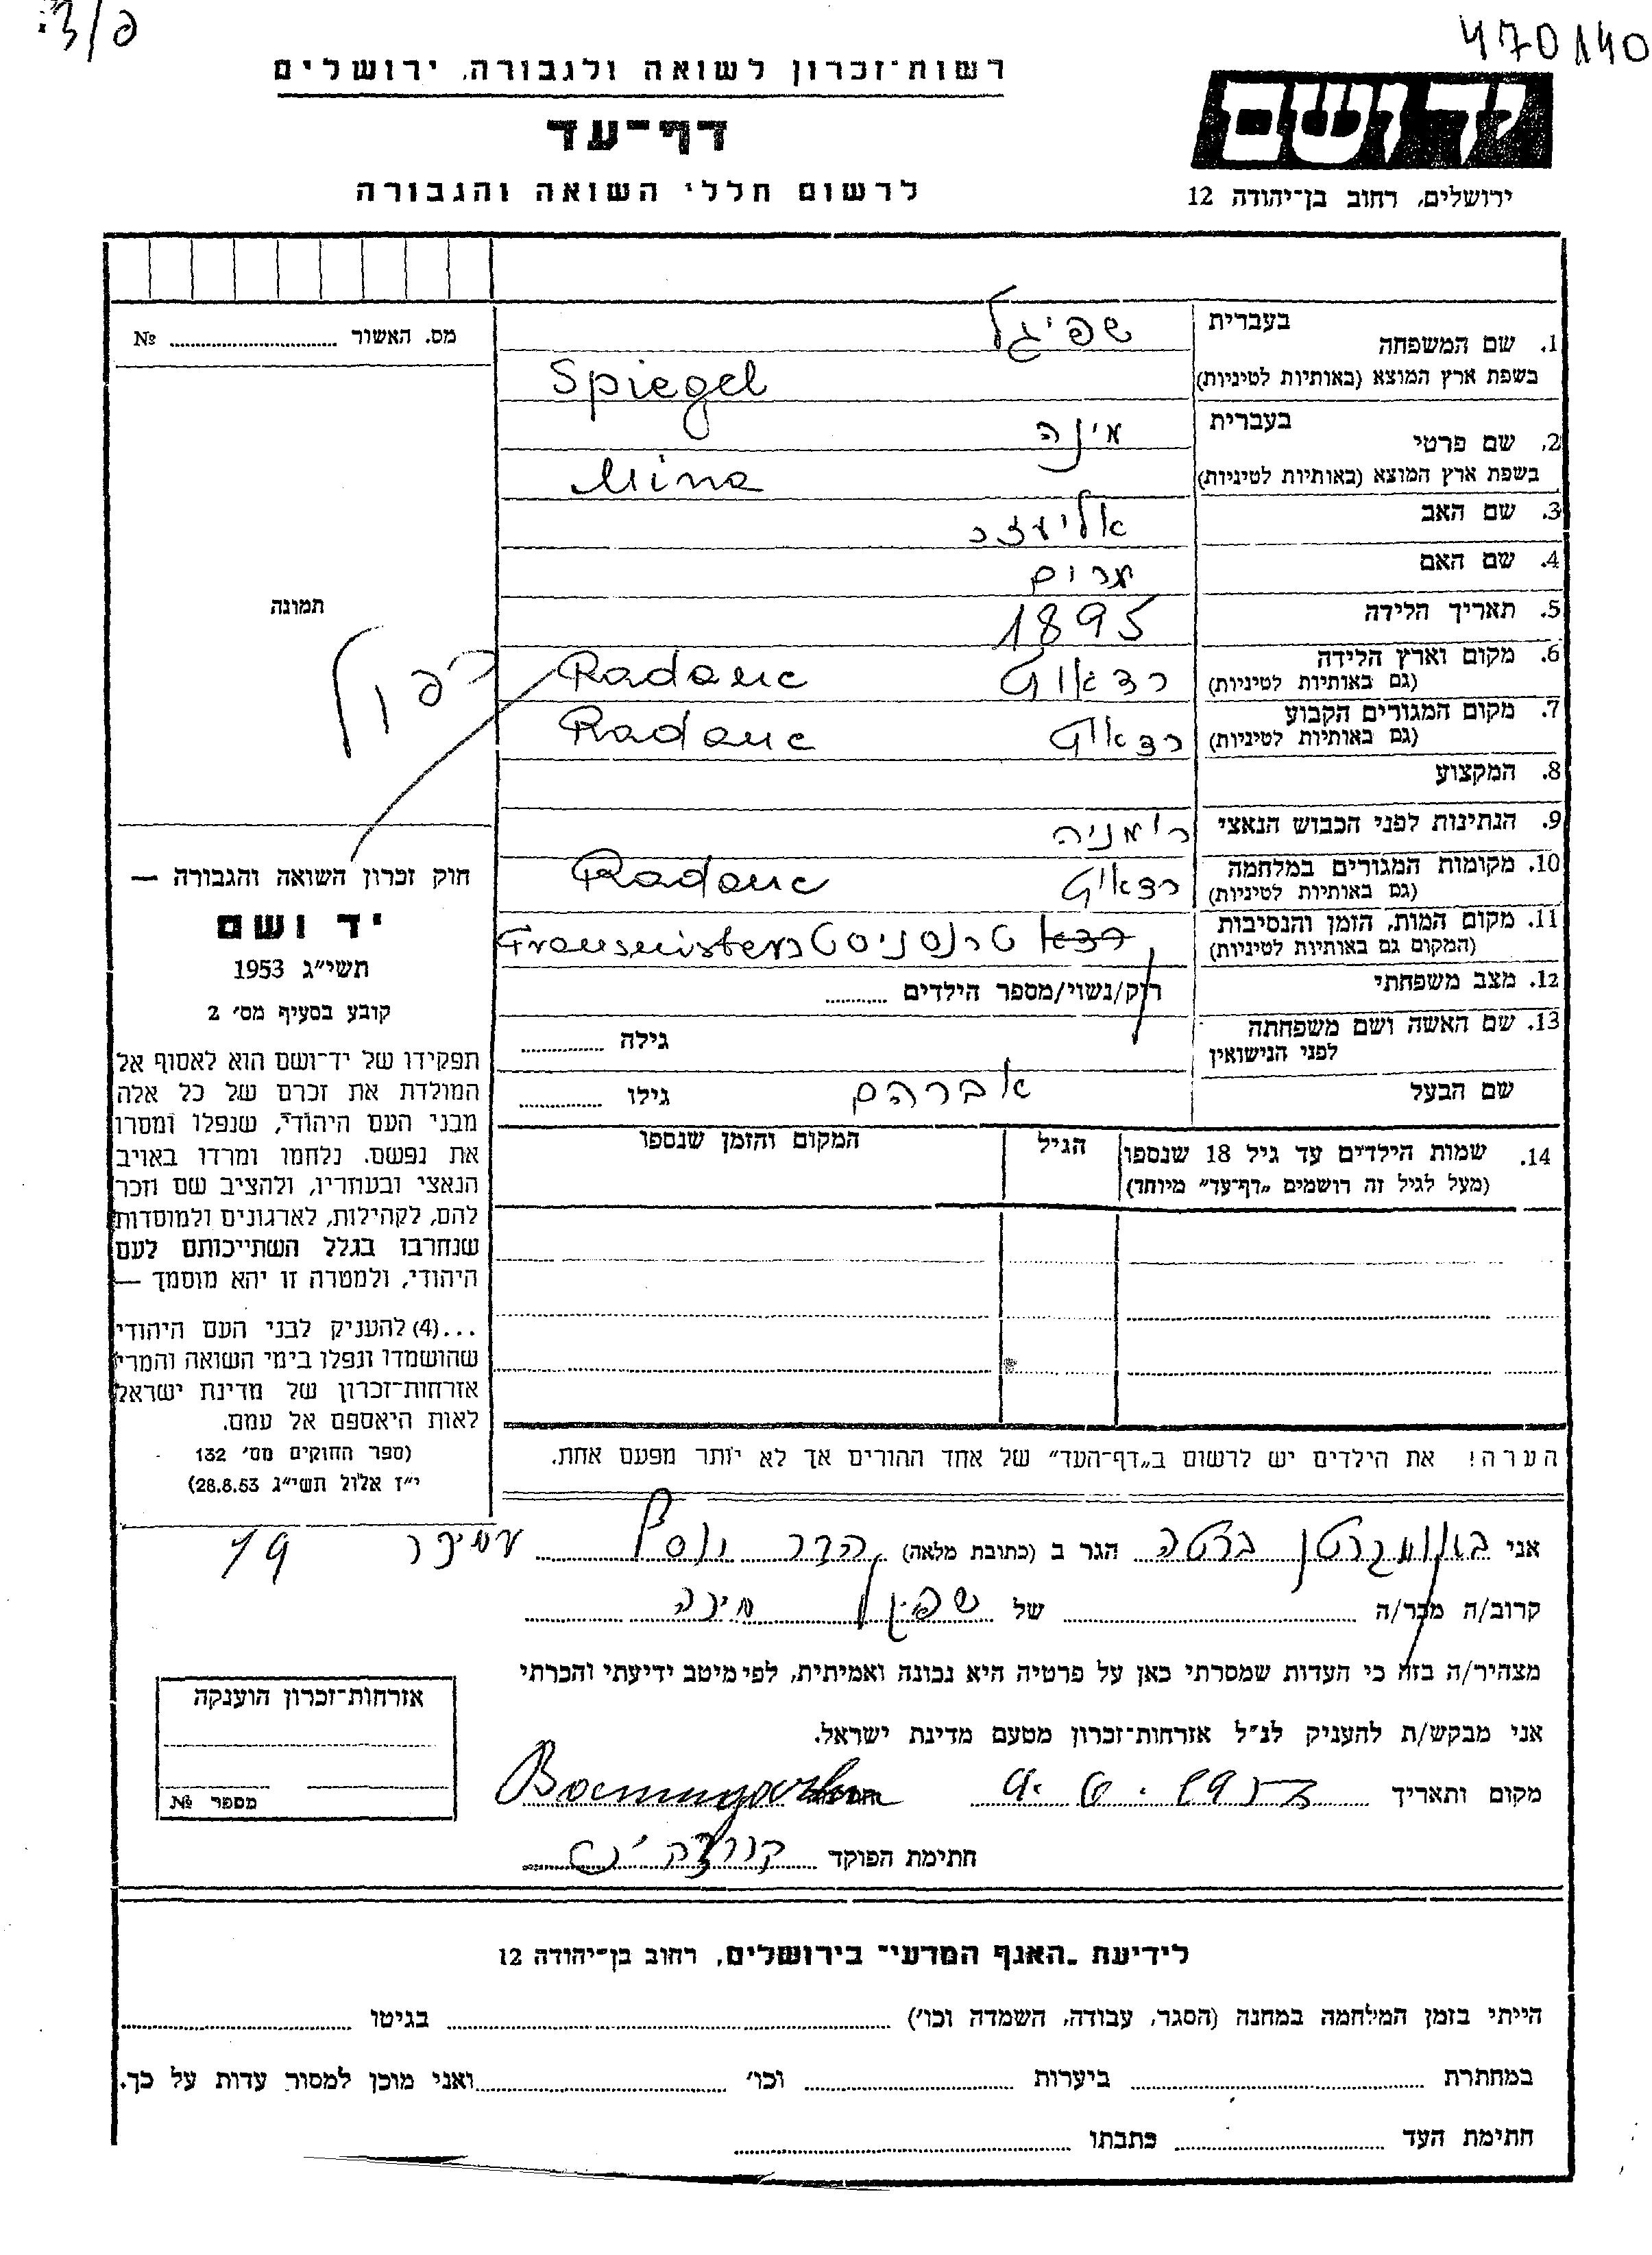 470140
רשות־זכרון לשואה ולגבורה, ירושלים
דף־עד
לרשום חללי השואה והגבורה
יד ושם
ירושלים, רחוב בן־יהודה 12
מס. האשור № 
תמונה
כפול
חוק זכרון השואה והגבורה —
יד ושם
תשי״ג 1953
קובע בסעיף מס׳ 2
תפקידו של יד־ושם הוא לאסוף אל
המולדת את זכרם של כל אלה
מבני העם היהודי, שנפלו ומסרו
את נפשם, נלחמו ומרדו באויב
הנאצי ובעוזריו, ולהציב שם וזכר
להם, לקהילות, לארגונים ולמוסדות
שנחרבו בגלל השתייכותם לעם
היהודי, ולמטרה זו יהא מוסמך —
...(4) להעניק לבני העם היהודי
שהושמדו ונפלו בימי השואה והמרי
אזרחות־זכרון של מדינת ישראל
לאות היאספם אל עמם.
(ספר החוקים מס׳ 132
י״ז אלול תשי״ג 28.8.53)
1. שם המשפחה בעברית שפיגל
בשפת ארץ המוצא (באותיות לטיניות) Spiegel
2. שם פרטי בעברית מינה
בשפת ארץ המוצא (באותיות לטיניות) Mina
3. שם האב אליעזר
4. שם האם מרים
5. תאריך הלידה 1895
6. מקום וארץ הלידה (גם באותיות לטיניות) רדאוץ Radauc
7. מקום המגורים הקבוע (גם באותיות לטיניות) רדאוץ Radauc
8. המקצוע
9. הנתינות לפני הכבוש הנאצי רומניה
10. מקומות המגורים במלחמה (גם באותיות לטיניות) רדאוץ Radauc
11. מקום המות, הזמן והנסיבות (המקום גם באותיות לטיניות) טרנסניסטר
12. מצב משפחתי רוק/נשוי/מספר הילדים
13. שם האשה ושם משפחתה לפני הנישואין גילה
שם הבעל אברהם גילו
14. שמות הילדים עד גיל 18 שנספו הגיל המקום והזמן שנספו
(מעל לגיל זה רושמים „דף־עד״ מיוחד)
הערה! את הילדים יש לרשום ב„דף־העד״ של אחד ההורים אך לא יותר מפעם אחת.
אני באומגרטן ברטה הגר ב (כתובת מלאה) הדר יוסף 19
קרוב/ה מכר/ה של שפיגל מינה
מצהיר/ה בזה כי העדות שמסרתי כאן על פרטיה היא נכונה ואמיתית, לפי מיטב ידיעתי והכרתי
אני מבקש/ת להעניק לנ״ל אזרחות־זכרון מטעם מדינת ישראל.
מקום ותאריך
חתימת הפוקד
אזרחות־זכרון הוענקה
מספר №
לידיעת „האגף המדעי״ בירושלים, רחוב בן־יהודה 12
הייתי בזמן המלחמה במחנה (הסגר, עבודה, השמדה וכו׳) בגיטו
במחתרת ביערות וכו׳ ואני מוכן למסור עדות על כך.
חתימת העד כתבתו